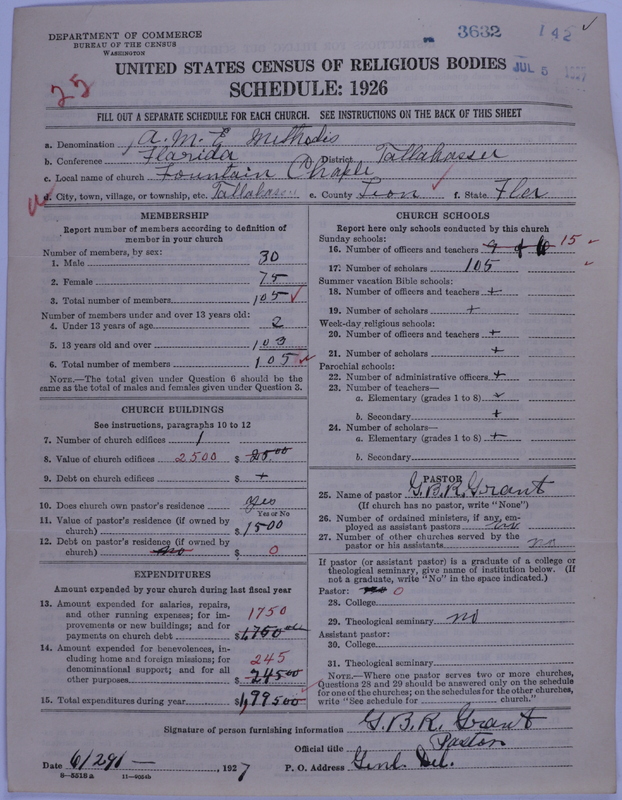 DEPARTMENT OF COMMERCE
BUREAU OF THE CENSUS
WASHINGTON
3632
142
JUL 5
UNITED STATES CENSUS OF RELIGIOUS BODIES
SCHEDULE: 1926
FILL OUT A SEPARATE SCHEDULE FOR EACH CHURCH. SEE INSTRUCTIONS ON THE BACK OF THIS SHEET
a. Denomination A. M. E. Methodis
b. Conference Florida District Tallahassee
c. Local name of church Fountain Chaple
d. City, town, village, or township, etc. Tallahassee e. County Leon f. State Flor
MEMBERSHIP
Report number of members according to definition of member in your church
Number of members, by sex:
1. Male 30
2. Female 75
3. Total number of members 105
Number of members under and over 13 years old:
4. Under 13 years of age 2
5. 13 years old and over 103
6. Total number of members 105
NOTE.—The total given under Question 6 should be the same as the total of males and females given under Question 3.
CHURCH BUILDINGS
See instructions, paragraphs 10 to 12
7. Number of church edifices 1
8. Value of church edifices 2500 $ 2500
9. Debt on church edifices $ +
10. Does church own pastor's residence yes
Yes or No
11. Value of pastor's residence (if owned by church) $ 1500
12. Debt on pastor's residence (if owned by church) no $ 0
EXPENDITURES
Amount expended by your church during last fiscal year
13. Amount expended for salaries, repairs, and other running expenses; for improvements or new buildings; and for payments on church debt 1750 $ 1750
14. Amount expended for benevolences, including home and foreign missions; for denominational support; and for all other purposes 245 $ 24500
15. Total expenditures during year $ 1,99500
CHURCH SCHOOLS
Report here only schools conducted by this church
Sunday schools:
16. Number of officers and teachers 9 15
17. Number of scholars 105
Summer vacation Bible schools:
18. Number of officers and teachers +
19. Number of scholars +
Week-day religious schools:
20. Number of officers and teachers +
21. Number of scholars +
Parochial schools:
22. Number of administrative officers +
23. Number of teachers—
a. Elementary (grades 1 to 8) +
b. Secondary +
24. Number of scholars—
a. Elementary (grades 1 to 8) +
b. Secondary
PASTOR
25. Name of pastor G. B. R. Grant
(If church has no pastor, write "None")
26. Number of ordained ministers, if any, employed as assistant pastors
27. Number of other churches served by the pastor or his assistants no
If pastor (or assistant pastor) is a graduate of a college or theological seminary, give name of institution below. (If not a graduate, write "No" in the space indicated.)
Pastor: no 0
28. College
29. Theological seminary no
Assistant pastor:
30. College
31. Theological seminary
NOTE.—Where one pastor serves two or more churches, Questions 28 and 29 should be answered only on the schedule for one of the churches; on the schedules for the other churches, write "See schedule for ........ church."
Signature of person furnishing information G. B. R. Grant
Official title Pastor
Date 6/29 1927 P. O. Address Genl. Del.
8—5518a 11—9054b